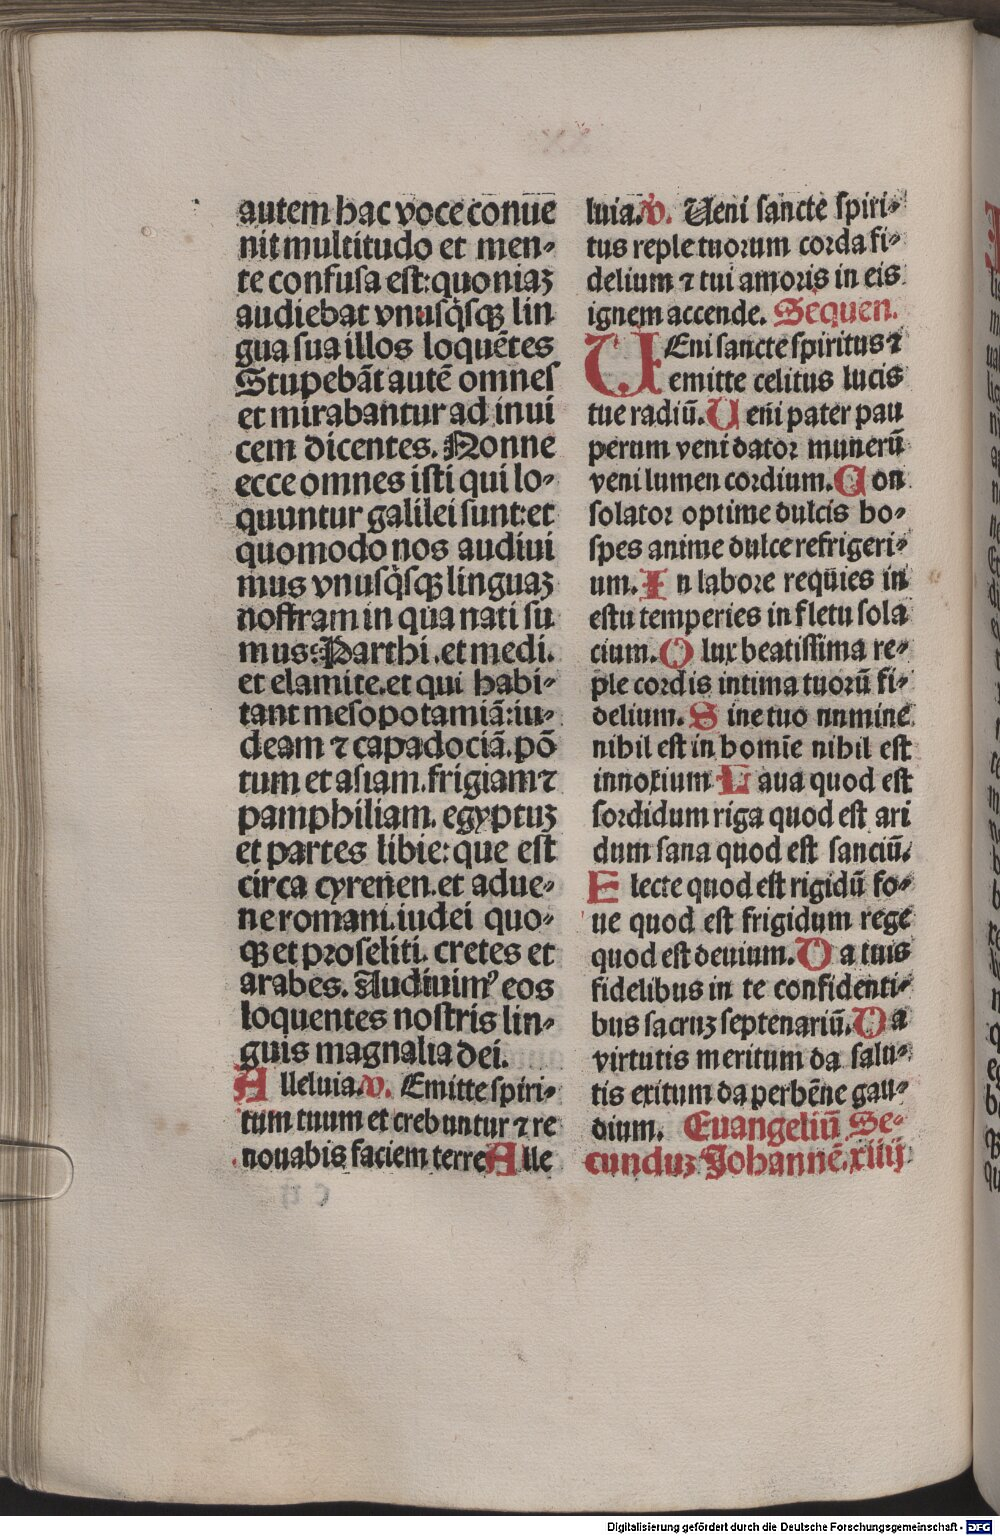 autem hac voce conue
nit multitudo et men⸗
te confusa est: quoniaʒ
audiebat vnusq̃sqʒ lin
gua sua illos loquētes
Stupebāt autē omnes
et mirabantur ad inui
cem dicentes. Nonne
ecce omnes isti qui lo⸗
quuntur galilei sunt: et
quomodo nos audiui
mus vnusq̃sqʒ linguaʒ
nostram in qua nati su
mus: Parthi. et medi.
et elamite. et qui habi⸗
tant mesopotamiā: iu⸗
deam ⁊ capadociā. pō
tum et asiam. frigiam ⁊
pamphiliam. egyptuʒ
et partes libie: que est
circa cyrenen. et adue⸗
ne romani. iudei quo⸗
qʒ et proseliti. cretes et
arabes. Audiuimꝰ eos
loquentes nostris lin⸗
guis magnalia dei.
Alleluia. v. Emitte spiri⸗
tum tuum et creb untur ⁊ re
nouabis faciem terre Alle
luia. v. Ueni sancte spiri⸗
tus reple tuorum corda fi⸗
delium ⁊ tui amoris in eis
ignem accende. Sequen.
UEni sancte spiritus ⁊
emitte celitus lucis
tue radiū. Ueni pater pau
perum veni dator munerū
veni lumen cordium. Con
solator optime dulcis ho⸗
spes anime dulce refrigeri⸗
um. In labore requies in
estu temperies in fletu sola
cium. O lux beatissima re⸗
ple cordis intima tuorū fi⸗
delium. Sine tuo nnmine
nihil est in homīe nihil est
innoxium Laua quod est
sordidum riga quod est ari
dum sana quod est sanciū.
Electe quod est rigidū fo⸗
ue quod est frigidum rege
quod est deuium. Da tuis
fidelibus in te confidenti⸗
bus sacruʒ septenariū. Da
virtutis meritum da salu⸗
tis exitum da perhēne gau⸗
dium. Euangeliū Se⸗
cunduʒ Johannē. xiiij
Digitalisierung gefördert durch die Deutsche Forschungsgemeinschaft - DFG